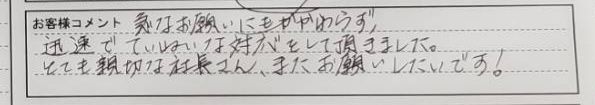 お客様コメント 急なお願いにもかかわらず、
迅速でていねいな対応をして頂きました。
とても親切な社長さん、またお願いしたいです!